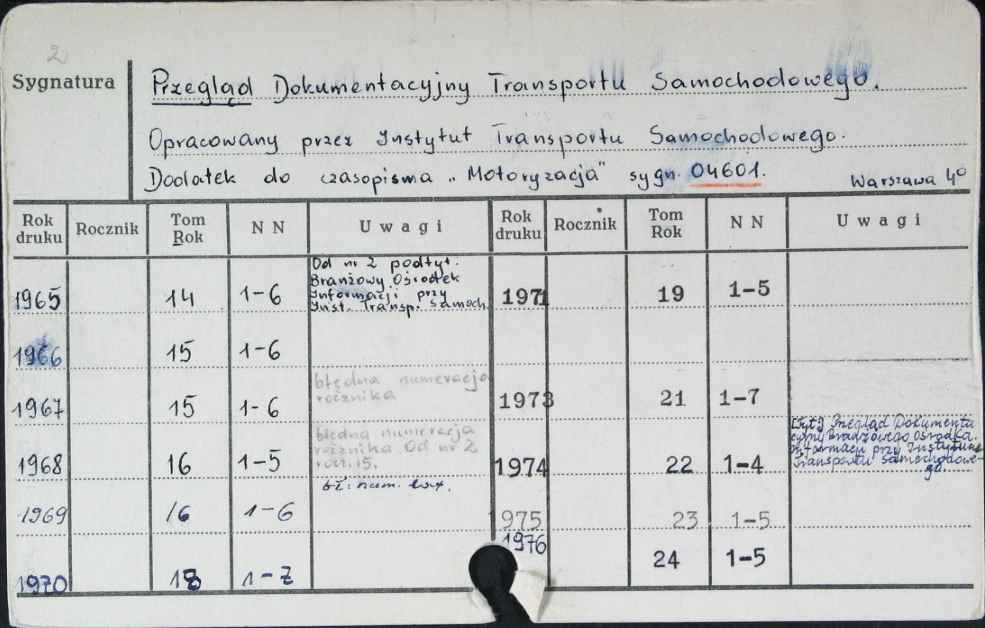 2
Sygnatura
Przegląd Dokumentacyjny Transportu Samochodowego.
Opracowany przez Instytut Transportu Samochodowego.
Dodatek do czasopisma „Motoryzacja" sygn. 04601.
Warszawa 4°
Rok druku Rocznik Tom Rok NN Uwagi Rok druku Rocznik Tom Rok NN Uwagi
1965 14 1-6
Od nr 2 podtyt.
Branżowy Ośrodek
Informacji przy
Inst. Transp. Samoch.
1971 19 1-5
1966 15 1-6
1967 15 1-6
błędna numeracja
rocznika
1973 21 1-7
1968 16 1-5
błędna numeracja
rocznika. Od nr 2
roczn. 15.
1974 22 1-4
[tyt.] Przegląd Dokumenta
cyjny Branżowego Ośrodka
Informacji przy Instytucie
Transportu Samochodowe-
go
1969 16 1-6
bł. num.
1975 23 1-5
1970 18 1-7
1976 24 1-5